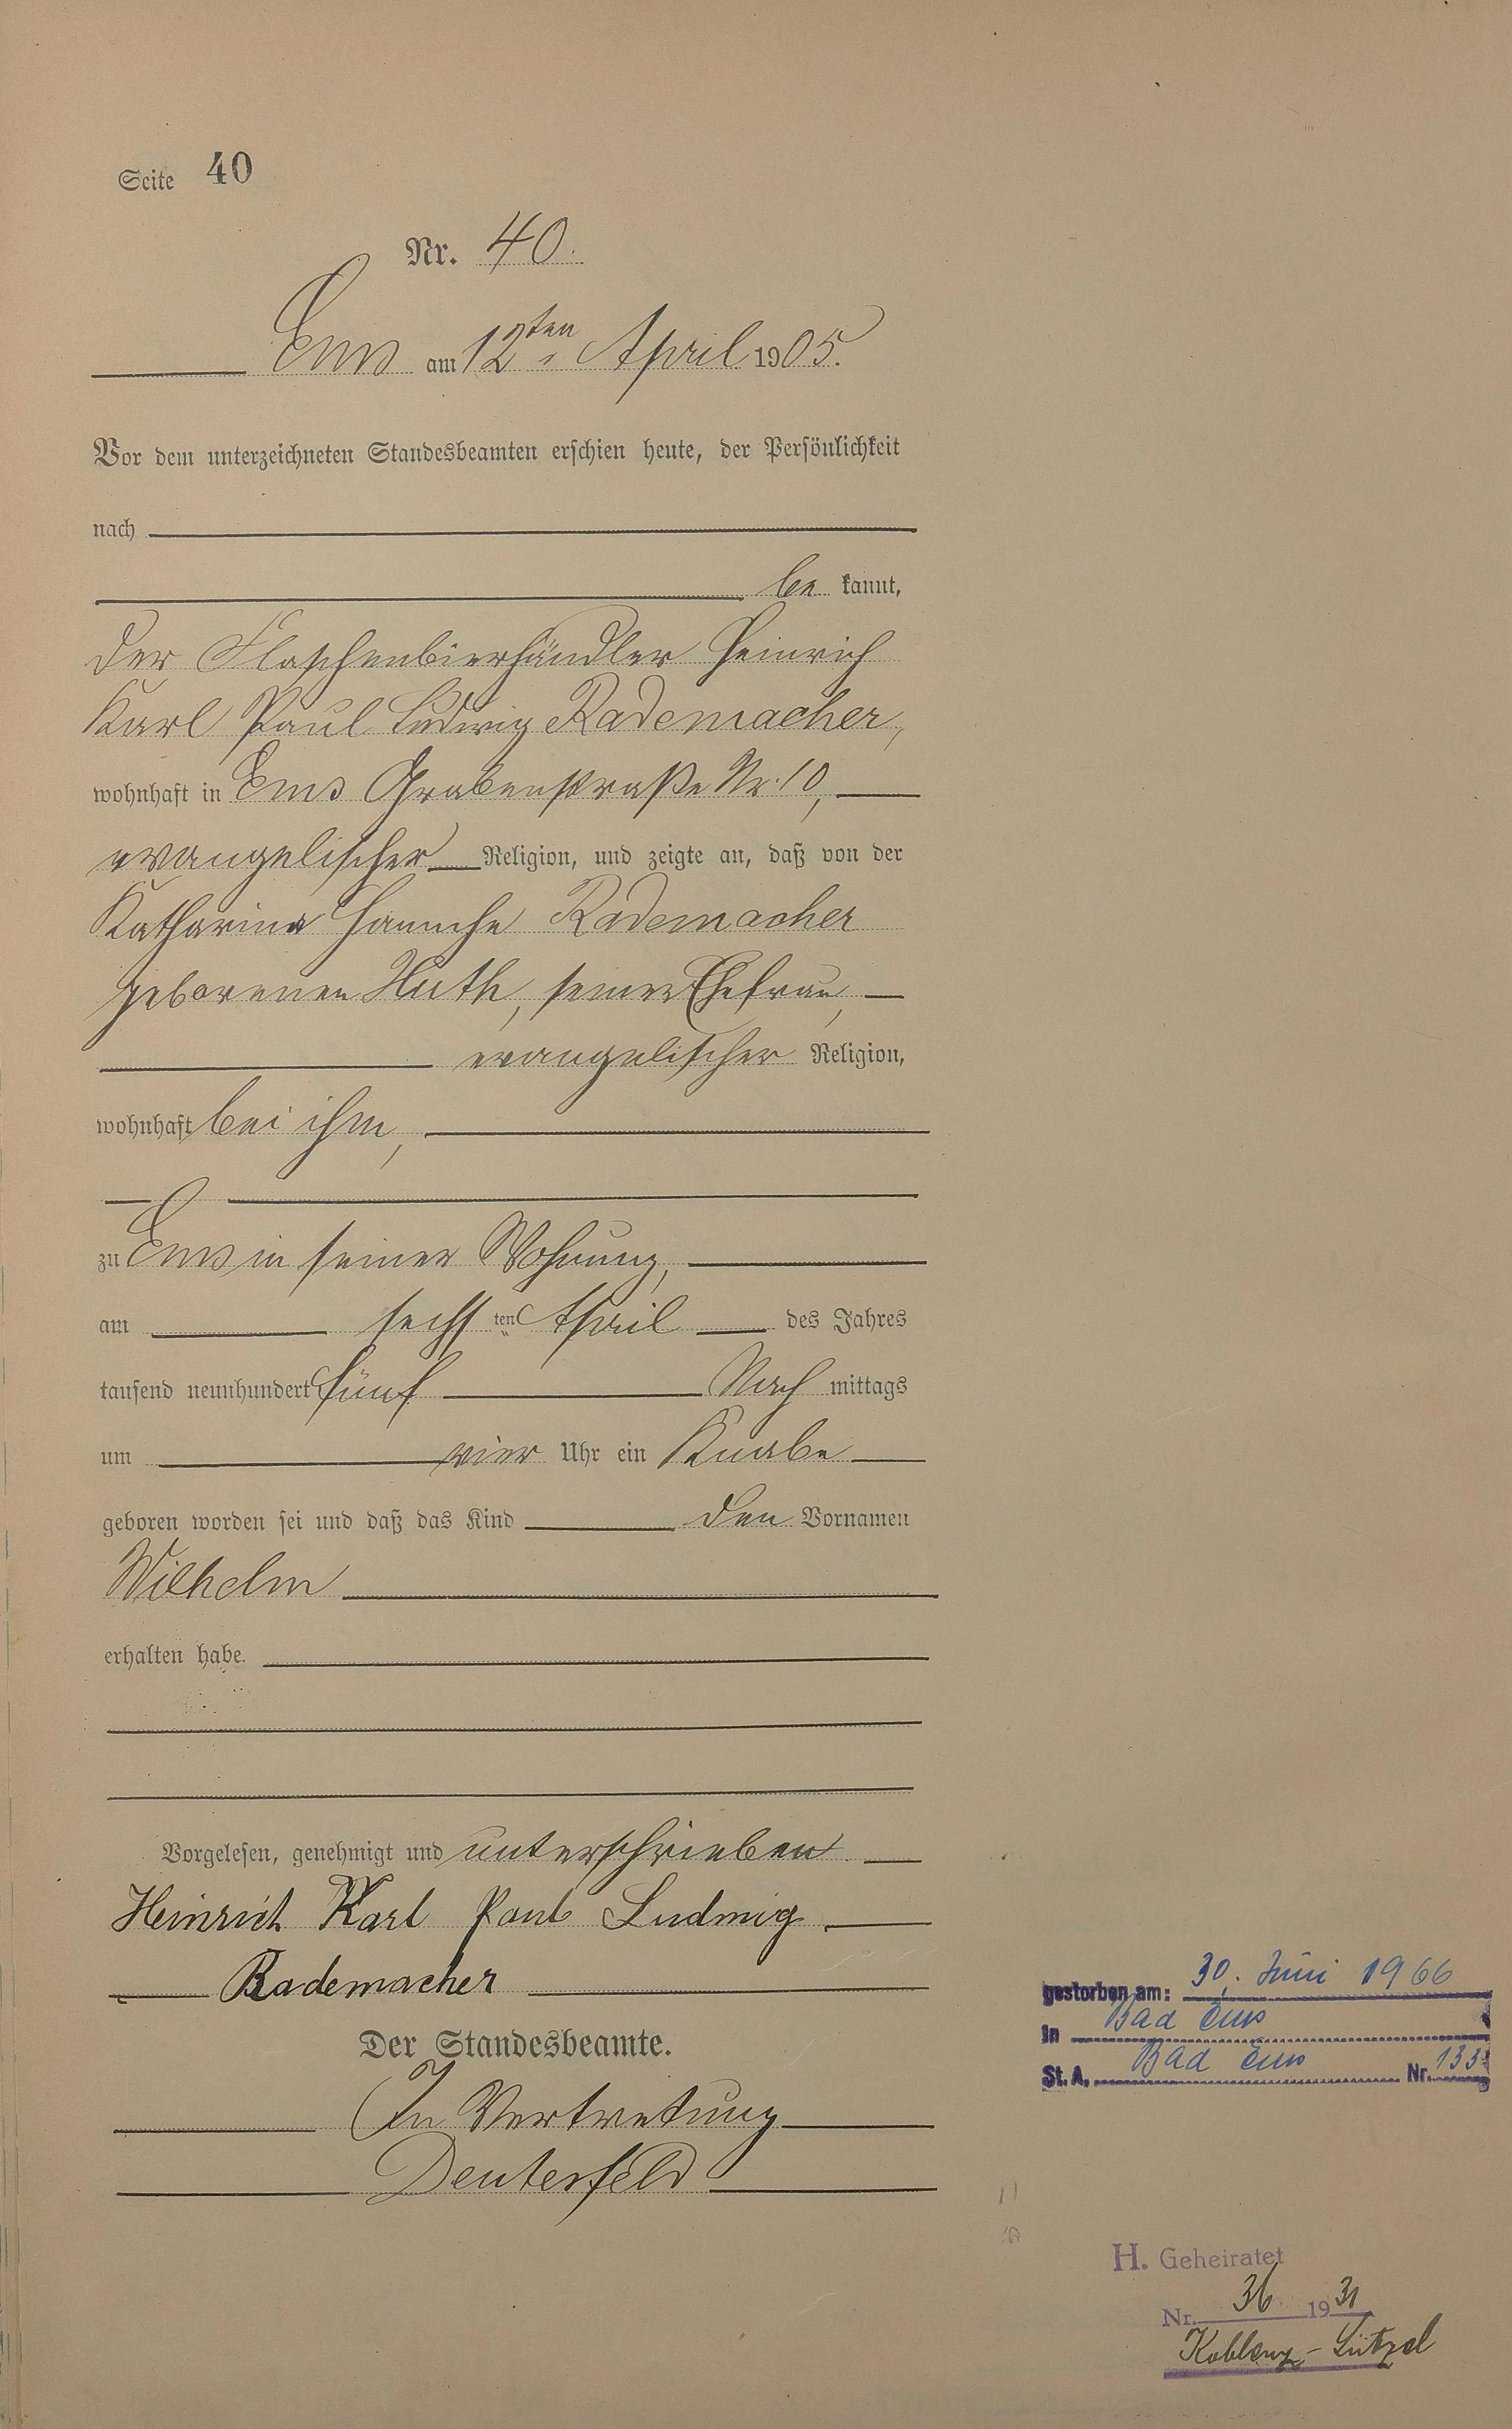 Seite 40
Nr. 40.
Ems am 12ten April 1905.
Vor dem unterzeichneten Standesbeamten erschien heute, der Persönlichkeit
nach
be kannt,
der Flaschenbierhändler Heinrich
Karl Paul Ludwig Rademacher,
wohnhaft in Ems Grabenstraße Nr. 10,
evangelischer Religion, und zeigte an, daß von der
Katharina Rademacher
geborenen Huth, seiner Ehefrau,
evangelischer Religion,
wohnhaft bei ihm,
zu Ems in seiner Wohnung,
am sechsten April des Jahres
tausend neunhundert fünf Nach mittags
um vier Uhr ein Knabe
geboren worden sei und daß das Kind den Vornamen
Wilhelm
erhalten habe.
Vorgelesen, genehmigt und unterschrieben
Heinrich Karl Paul Ludwig
Rademacher
Der Standesbeamte.
In Vertretung
Deuterfeld
gestorben am: 30. Juni 1966
in Bad Ems
St. A. Bad Ems Nr. 133
H. Geheiratet
Nr. 36 1931
Koblenz-Lützel